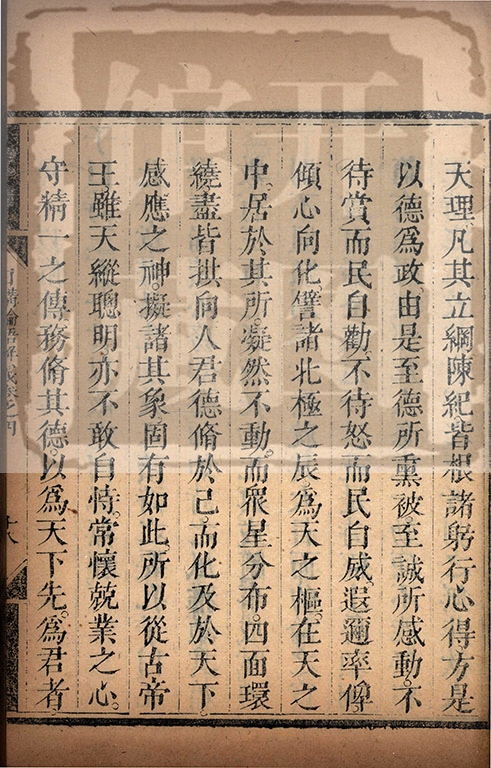 天理凡其立綱陳紀皆根諸躬行心得方是
以德爲政由是至德所熏被至誠所感動不
待賞而民自勸不待怒而民自威遐邇率俾
傾心向化譬諸北極之辰爲天之樞在天之
中居於其所凝然不動而眾星分布四面環
繞盡皆拱向人君德脩於己而化及於天下
感應之神擬諸其象固有如此所以從古帝
王雖天縱聰明亦不敢自恃常懷兢業之心
守精一之傳務脩其德以爲天下先爲君者